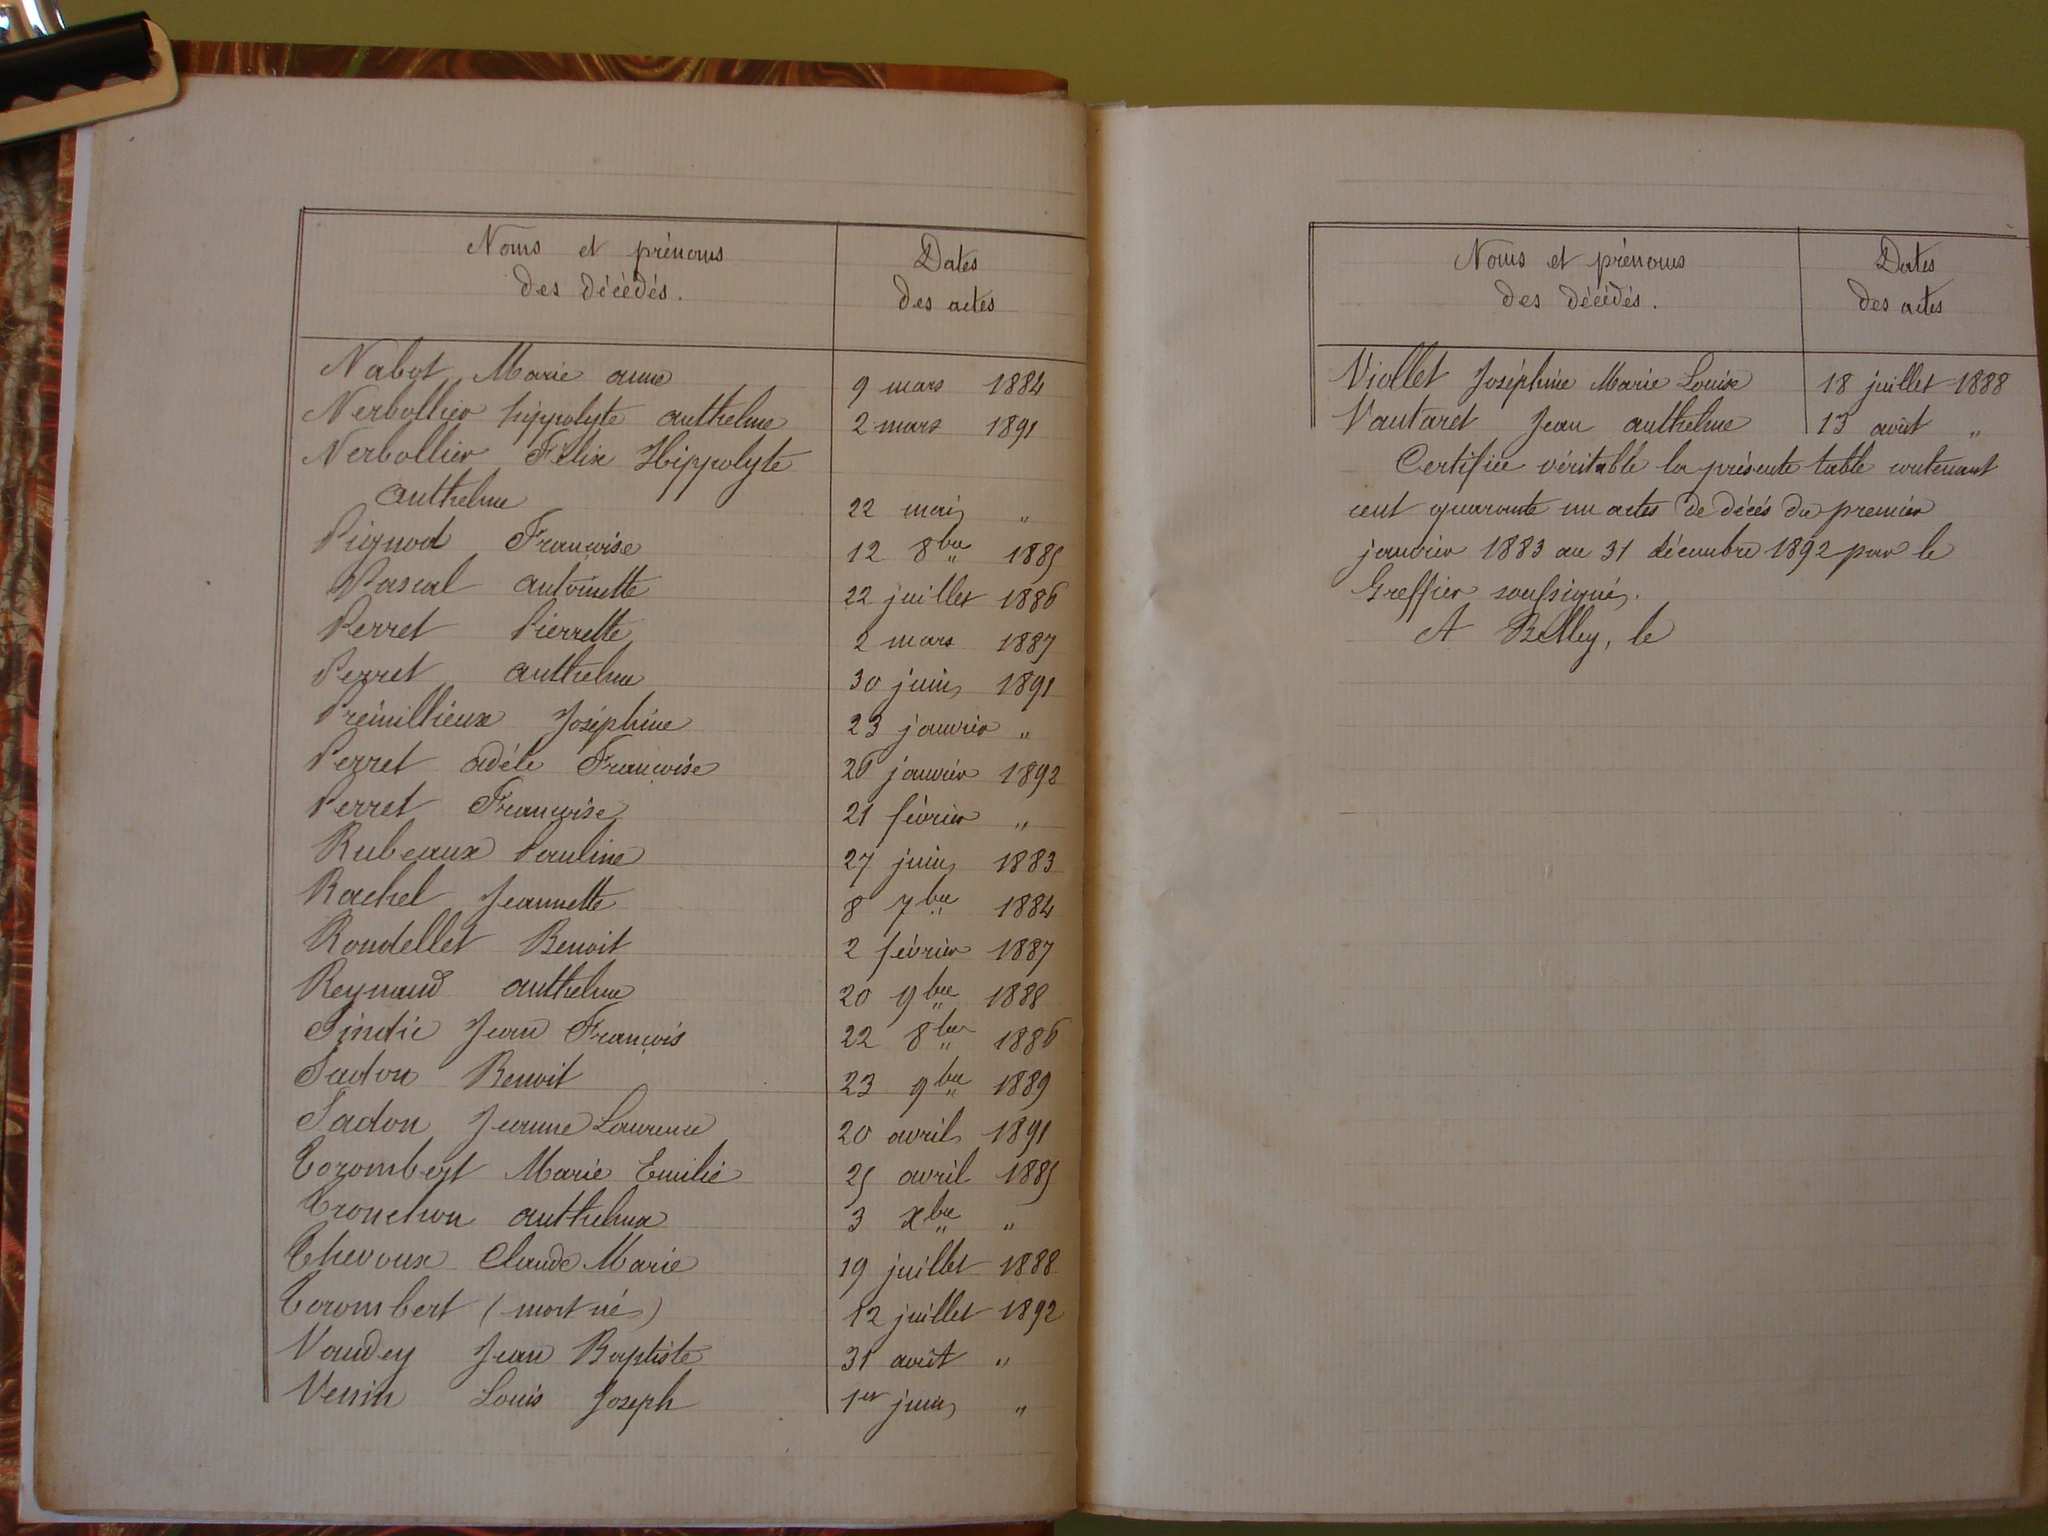 Noms et prénoms
des décédés.
Dates
des actes
Nabot Marie anne 9 mars 1884
Nerbollier hippolyte anthelme 2 mars 1891
Nerbollier Félix Hippolyte
anthelme 22 mai "
Pignod Françoise 12 8bre 1885
Pascal antoinette 22 juillet 1886
Perret Pierrette 2 mars 1887
Perret anthelme 30 juin 1891
Prémillieux Joséphine 23 janvier "
Perret adèle Françoise 26 janvier 1892
Perret Françoise 21 février "
Rubeaux Pauline 27 juin 1883
Rachel Jeannette 8 7bre 1884
Rondellet Benoit 2 février 1887
Reynaud anthelme 20 9bre 1888
Sindic Jean François 22 8bre 1886
Sadon Benoit 23 9bre 1889
Sadon Jeanne Laurence 20 avril 1891
Torombert Marie Emilie 25 avril 1885
Tronchon anthelme 3 xbre "
Thevoux Claude Marie 19 juillet 1888
Torombert (mort né) 12 juillet 1892
Vaudey Jean Baptiste 31 août "
Venin Louis Joseph 1er juin "
Noms et prénoms
des décédés.
Dates
des actes
Viollet Joséphine Marie Louise 18 juillet 1888
Vautaret Jean anthelme 13 août "
Certifiée véritable la présente table contenant
cent quarante un actes de décès du premier
janvier 1883 au 31 décembre 1892 par le
Greffier soussigné.
A Belley, le